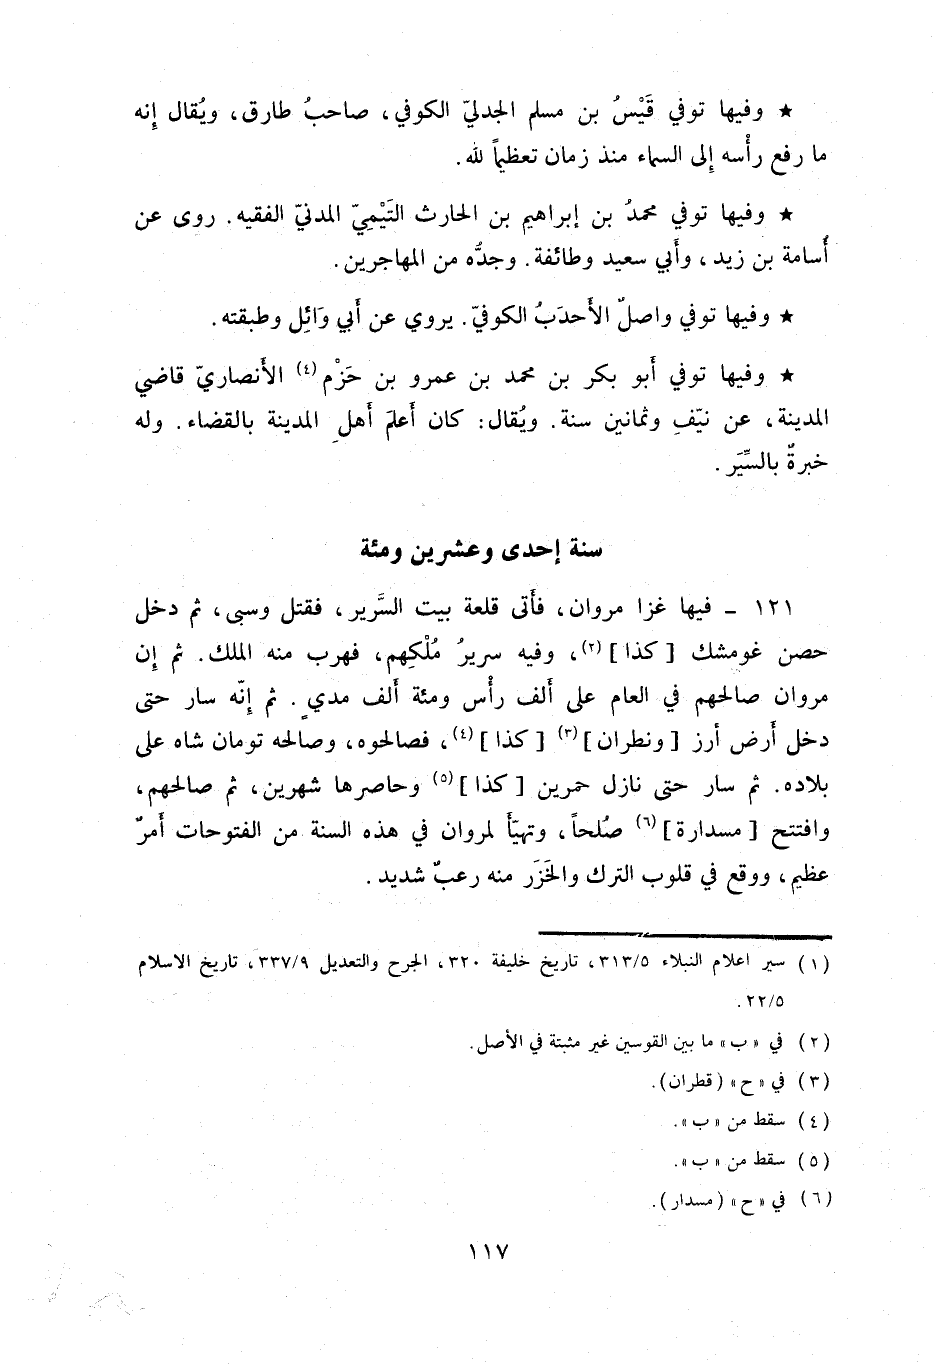 ★ وفيها توفي قَيْسُ بن مسلم الجدليّ الكوفي، صاحبُ طارق، ويُقال إنه
ما رفع رأْسه إلى السماء منذ زمان تعظيماً لله.
★ وفيها توفي محمدُ بن إبراهيم بن الحارث التَيْمِيّ المدنيّ الفقيه. روى عن
أُسامة بن زيد، وأَبي سعيد وطائفة. وجدُّه من المهاجرين.
★ وفيها توفي واصلٌ الأَحدَبُ الكوفيّ. يروي عن أَبي وَائِل وطبقته.
★ وفيها توفي أَبو بكر بن محمد بن عمرو بن حَزْم(٤) الأَنصاريّ قاضي
المدينة، عن نيّفِ وثمانين سنة. ويُقال: كان أَعلمَ أَهلِ المدينة بالقضاء. وله
خبرةٌ بالسِّيَر.
سنة إحدى وعشرين ومئة
١٢١ - فيها غزا مروان، فأَتى قلعة بيت السَّرير، فقتل وسبى، ثم دخل
حصن غومشك [كذا](٢)، وفيه سريرُ مُلْكِهم، فهرب منه الملك. ثم إن
مروان صالحهم في العام على أَلف رأْس ومئة أَلف مدي. ثم إنّه سار حتى
دخل أَرض أرز [ونطران](٣) [كذا](٤)، فصالحوه، وصالحه تومان شاه على
بلاده. ثم سار حتى نازل حمرين [كذا](٥) وحاصرها شهرين، ثم صالحهم،
وافتتح [مسدارة](٦) صُلحاً، وتهيّأ لمروان في هذه السنة من الفتوحات أَمرٌ
عظيم، ووقع في قلوب الترك والخَزَر منه رعبٌ شديد.
(١) سير اعلام النبلاء ٣١٣/٥، تاريخ خليفة ٣٢٠، الجرح والتعديل ٣٣٧/٩، تاريخ الاسلام
٢٢/٥.
(٢) في «ب» ما بين القوسين غير مثبتة في الأصل.
(٣) في «ح» (قطران).
(٤) سقط من «ب».
(٥) سقط من «ب».
(٦) في «ح» (مسدار).
١١٧